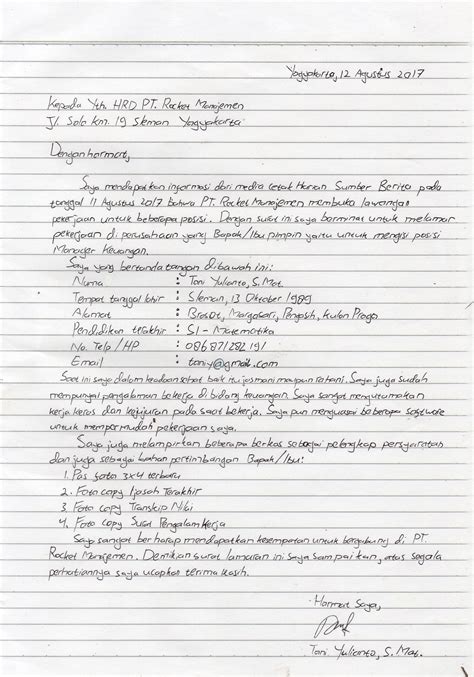 Yogyakarta, 12 Agustus 2017
Kepada Yth. HRD PT. Rocket Manajemen
Jl. Solo km. 19 Sleman Yogyakarta
Dengan hormat,
Saya mendapatkan informasi dari media cetak Harian Sumber Berita pada
tanggal 11 Agustus 2017 bahwa PT. Rocket Manajemen membuka lawangan
pekerjaan untuk beberapa posisi. Dengan surat ini saya berminat untuk melamar
pekerjaan di perusahaan yang Bapak/Ibu pimpin yaitu untuk mengisi posisi
Manager Keuangan.
Saya yang bertanda tangan dibawah ini:
Nama : Toni Yulianto, S.Mat.
Tempat tanggal lahir : Sleman, 13 Oktober 1989
Alamat : Brosot, Margosari, Pengasih, Kulon Progo
Pendidikan terakhir : S1 - Matematika
No. Telp / HP : 08687128219/
Email : toniy@gmail.com
Saat ini saya dalam keadaan sehat baik itu jasmani maupun rohani. Saya juga sudah
mempunyai pengalaman bekerja di bidang keuangan. Saya sangat mengutamakan
kerja keras dan kejujuran pada saat bekerja. Saya pun menguasai beberapa software
untuk mempermudah pekerjaan saya.
Saya juga melampirkan beberapa berkas sebagai pelengkap persyaratan
dan juga sebagai bahan pertimbangan Bapak/Ibu:
1. Pas foto 3x4 terbaru
2. Foto copy Ijasah Terakhir
3. Foto copy Transkip Nilai
4. Foto copy Surat Pengalam Kerja
Saya sangat berharap mendapatkan kesempatan untuk bergabung di PT.
Rocket Manajemen. Demikian surat lamaran ini saya sampaikan, atas segala
perhatiannya saya ucapkan terima kasih.
Hormat Saya,
Toni Yulianto, S.Mat.